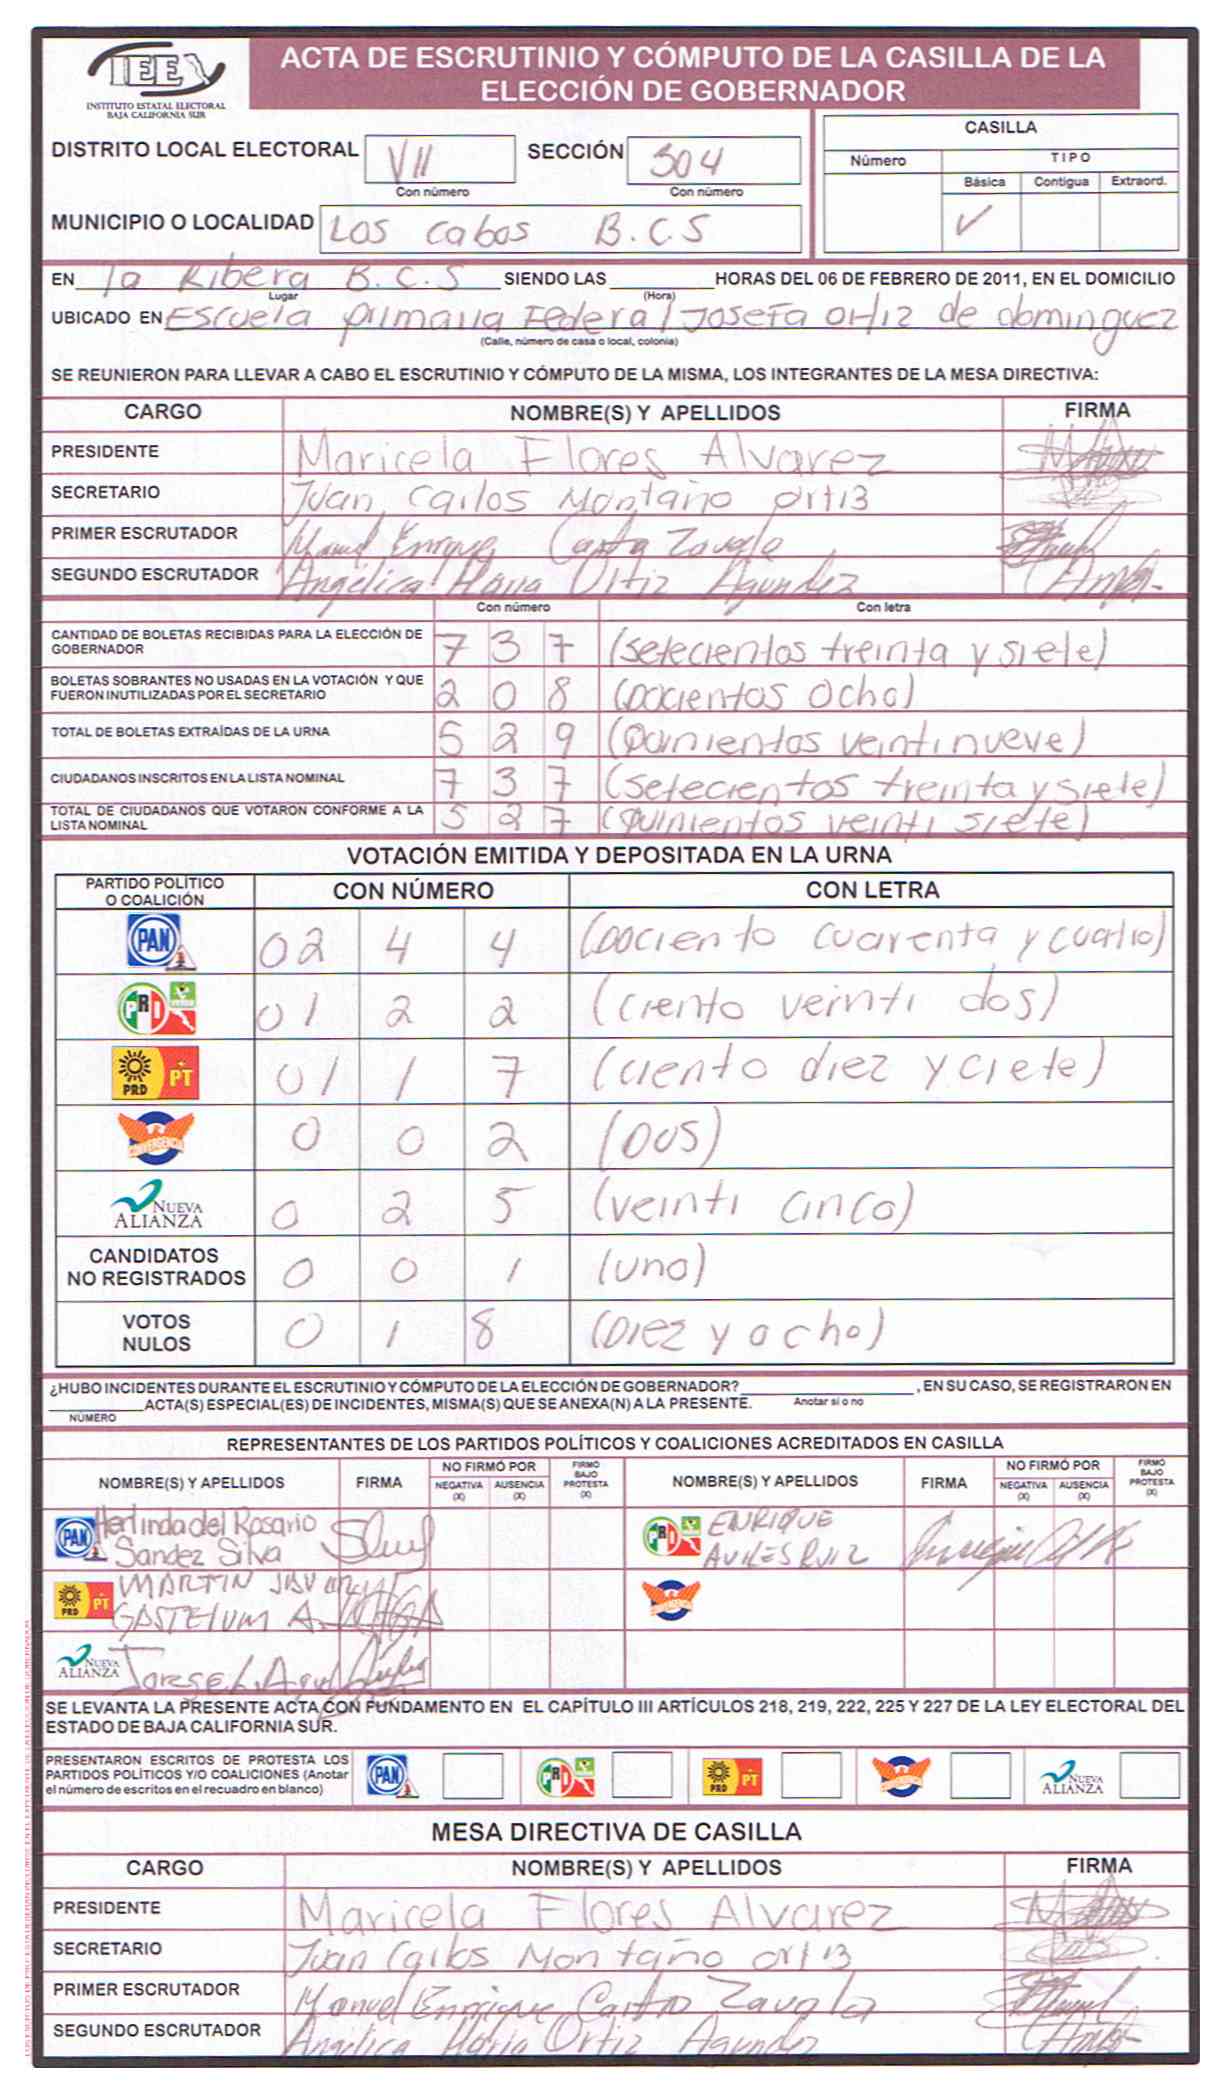 IEE
INSTITUTO ESTATAL ELECTORAL
BAJA CALIFORNIA SUR
ACTA DE ESCRUTINIO Y CÓMPUTO DE LA CASILLA DE LA
ELECCIÓN DE GOBERNADOR
DISTRITO LOCAL ELECTORAL VII SECCIÓN 304
Con número Con número
CASILLA
Número TIPO
Básica Contigua Extraord.
✓
MUNICIPIO O LOCALIDAD Los cabos B.C.S
EN la Ribera B.C.S SIENDO LAS HORAS DEL 06 DE FEBRERO DE 2011, EN EL DOMICILIO
Lugar (Hora)
UBICADO EN Escuela primaria Federal Josefa ortiz de dominguez
(Calle, número de casa o local, colonia)
SE REUNIERON PARA LLEVAR A CABO EL ESCRUTINIO Y CÓMPUTO DE LA MISMA, LOS INTEGRANTES DE LA MESA DIRECTIVA:
CARGO NOMBRE(S) Y APELLIDOS FIRMA
PRESIDENTE Maricela Flores Alvarez
SECRETARIO Juan Carlos Montaño orti3
PRIMER ESCRUTADOR Manuel Enrique Castro Zavala
SEGUNDO ESCRUTADOR Angélica María Ortiz Agundez
Con número Con letra
CANTIDAD DE BOLETAS RECIBIDAS PARA LA ELECCIÓN DE
GOBERNADOR 7 3 7 (setecientos treinta y siete)
BOLETAS SOBRANTES NO USADAS EN LA VOTACIÓN Y QUE
FUERON INUTILIZADAS POR EL SECRETARIO 2 0 8 (Docientos Ocho)
TOTAL DE BOLETAS EXTRAÍDAS DE LA URNA 5 2 9 (Quinientos veintinueve)
CIUDADANOS INSCRITOS EN LA LISTA NOMINAL 7 3 7 (setecientos treinta y siete)
TOTAL DE CIUDADANOS QUE VOTARON CONFORME A LA
LISTA NOMINAL 5 2 7 (Quinientos veinti siete)
VOTACIÓN EMITIDA Y DEPOSITADA EN LA URNA
PARTIDO POLÍTICO
O COALICIÓN CON NÚMERO CON LETRA
PAN 02 4 4 (Dociento cuarenta y cuatro)
PRD VERDE 01 2 2 (ciento veinti dos)
PRD PT 01 1 7 (ciento diez y ciete)
CONVERGENCIA 0 0 2 (Dos)
NUEVA ALIANZA 0 2 5 (veinti cinco)
CANDIDATOS
NO REGISTRADOS 0 0 1 (uno)
VOTOS
NULOS 0 1 8 (Diez y ocho)
¿HUBO INCIDENTES DURANTE EL ESCRUTINIO Y CÓMPUTO DE LA ELECCIÓN DE GOBERNADOR? , EN SU CASO, SE REGISTRARON EN
ACTA(S) ESPECIAL(ES) DE INCIDENTES, MISMA(S) QUE SE ANEXA(N) A LA PRESENTE. Anotar sí o no
NÚMERO
REPRESENTANTES DE LOS PARTIDOS POLÍTICOS Y COALICIONES ACREDITADOS EN CASILLA
NOMBRE(S) Y APELLIDOS FIRMA NO FIRMÓ POR NEGATIVA (X) AUSENCIA (X) FIRMÓ BAJO PROTESTA (X) NOMBRE(S) Y APELLIDOS FIRMA NO FIRMÓ POR NEGATIVA (X) AUSENCIA (X) FIRMÓ BAJO PROTESTA (X)
PAN Herlinda del Rosario
Sandez Silva
PRD ENRIQUE
AVILES RUIZ
PRD PT MARTIN JAVIER
GASTELUM A.
NUEVA ALIANZA Jorge L.
SE LEVANTA LA PRESENTE ACTA CON FUNDAMENTO EN EL CAPÍTULO III ARTÍCULOS 218, 219, 222, 225 Y 227 DE LA LEY ELECTORAL DEL
ESTADO DE BAJA CALIFORNIA SUR.
PRESENTARON ESCRITOS DE PROTESTA LOS
PARTIDOS POLÍTICOS Y/O COALICIONES (Anotar
el número de escritos en el recuadro en blanco)
PAN PRD PRD PT NUEVA ALIANZA
MESA DIRECTIVA DE CASILLA
CARGO NOMBRE(S) Y APELLIDOS FIRMA
PRESIDENTE Maricela Flores Alvarez
SECRETARIO Juan Carlos Montaño orti3
PRIMER ESCRUTADOR Manuel Enrique Castro Zavala
SEGUNDO ESCRUTADOR Angélica María Ortiz Agundez